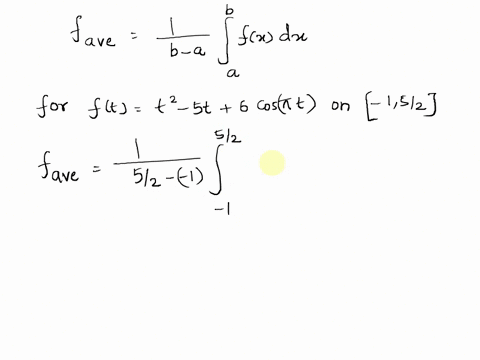 f_ave = 1/(b-a) ∫_a^b f(x) dx
for f(t) = t² - 5t + 6 cos(πt) on [-1, 5/2]
f_ave = 1/(5/2 - (-1)) ∫_{-1}^{5/2}